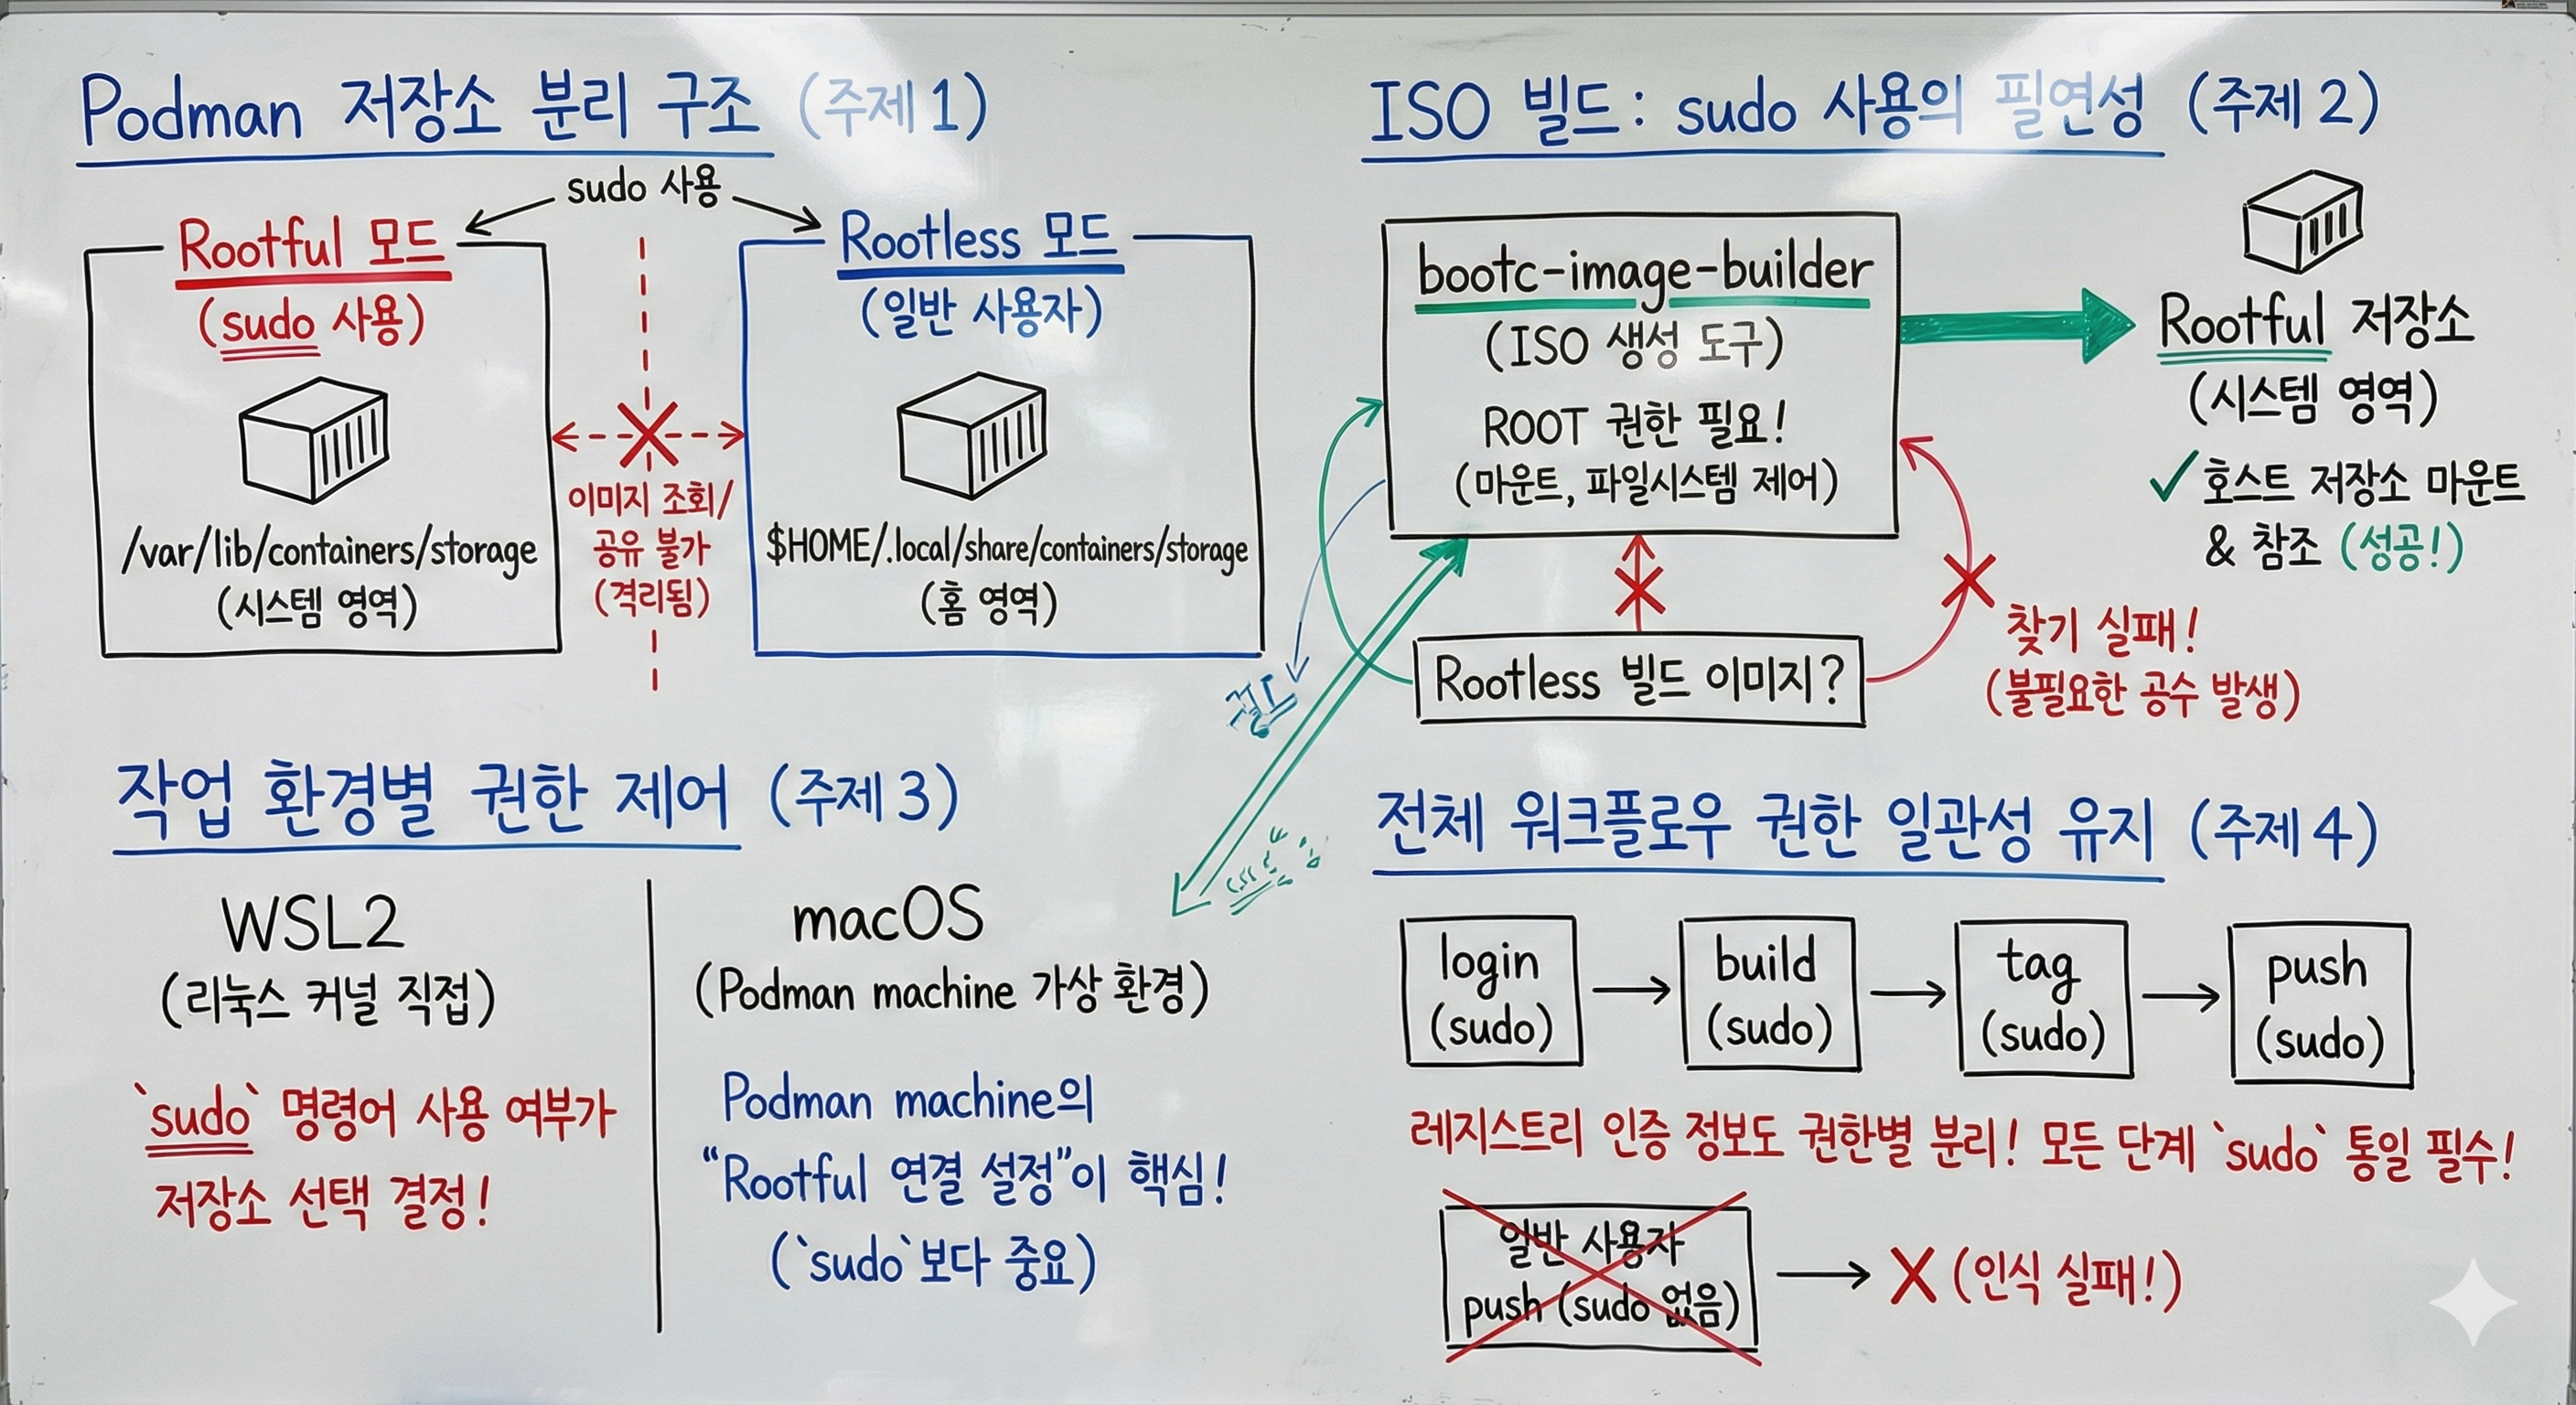 Podman 저장소 분리 구조 (주제 1)
sudo 사용
Rootful 모드
(sudo 사용)
/var/lib/containers/storage
(시스템 영역)
이미지 조회/
공유 불가
(격리됨)
Rootless 모드
(일반 사용자)
$HOME/.local/share/containers/storage
(홈 영역)
ISO 빌드: sudo 사용의 필연성 (주제 2)
bootc-image-builder
(ISO 생성 도구)
ROOT 권한 필요!
(마운트, 파일시스템 제어)
Rootful 저장소
(시스템 영역)
✓ 호스트 저장소 마운트
& 참조 (성공!)
Rootless 빌드 이미지?
찾기 실패!
(불필요한 공수 발생)
작업 환경별 권한 제어 (주제 3)
WSL2
(리눅스 커널 직접)
`sudo` 명령어 사용 여부가
저장소 선택 결정!
macOS
(Podman machine 가상 환경)
Podman machine의
“Rootful 연결 설정”이 핵심!
(`sudo`보다 중요)
전체 워크플로우 권한 일관성 유지 (주제 4)
login
(sudo)
build
(sudo)
tag
(sudo)
push
(sudo)
레지스트리 인증 정보도 권한별 분리! 모든 단계 `sudo` 통일 필수!
일반 사용자
push (sudo 없음)
X (인식 실패!)